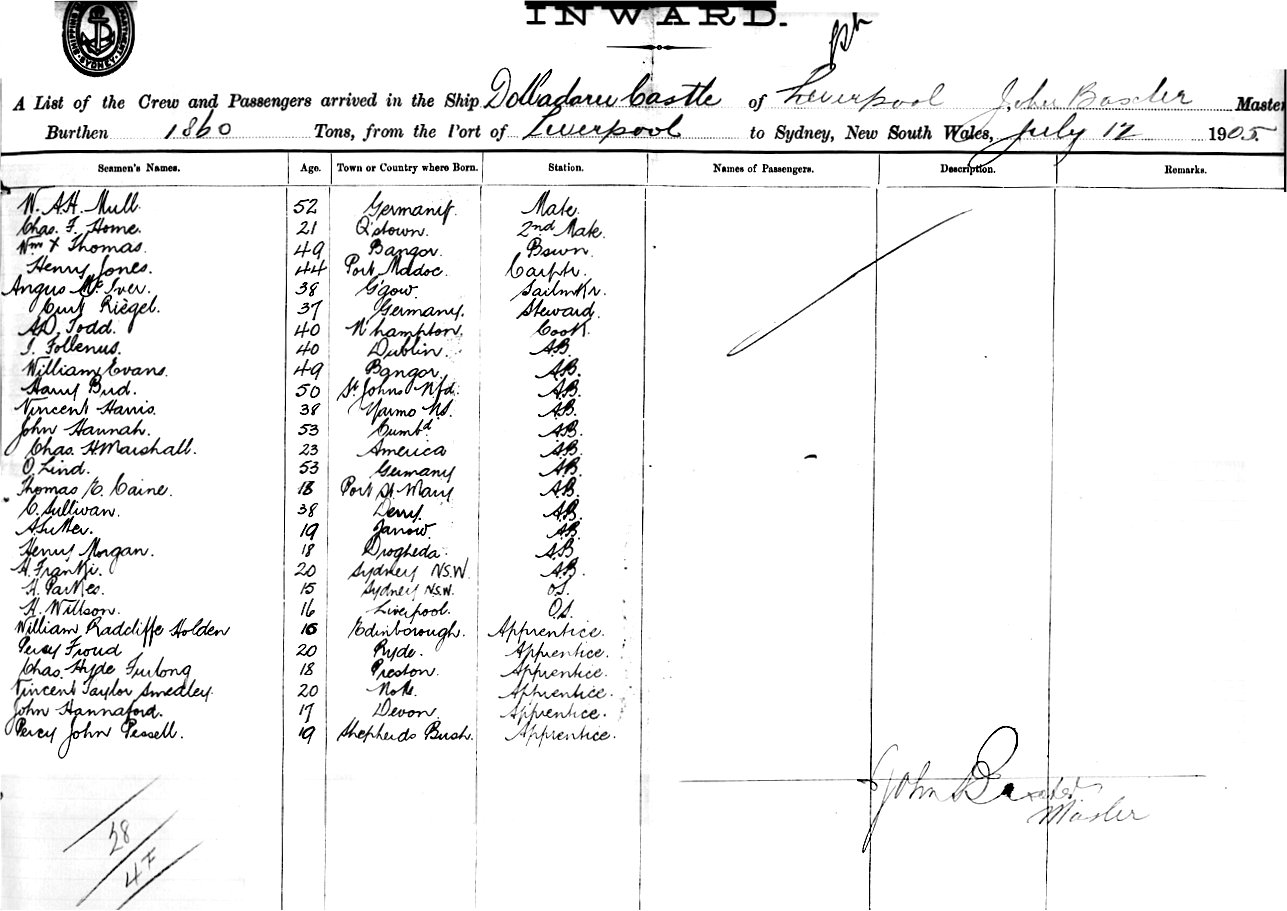 SHIPPING DEPARTMENT SYDNEY
INWARD.
A List of the Crew and Passengers arrived in the Ship Dolbadarn Castle of Liverpool John Baxter Master
Burthen 1860 Tons, from the Port of Liverpool to Sydney, New South Wales, July 12 1905
Seamen's Names. Age. Town or Country where Born. Station. Names of Passengers. Description. Remarks.
W. A.H. Mull. 52 Germany. Mate.
Chas. F. Home. 21 Q'stown. 2nd Mate.
Wm Thomas. 49 Bangor. Bswn.
Henry Jones. 44 Port Madoc. Carptr.
Angus Mc Iver. 38 G'gow. Sailmkr.
Curt Riegel. 37 Germany. Steward.
A.D. Todd. 40 N'hampton. Cook.
Follenus. 40 Dublin. AB.
William Evans. 49 Bangor. AB.
Harry Bird. 50 St Johns Nfd. AB.
Vincent Harris. 38 Yarmo NS. AB.
John Hannah. 53 Cumbd AB.
Chas. H. Marshall. 23 America AB.
O. Lind. 53 Germany AB.
Thomas E. Caine. 18 Port St Mary AB.
C. Sullivan. 38 Derry. AB.
19 Jarrow. AB.
Henry Morgan. 18 Drogheda. AB.
H. Franki. 20 Sydney N.S.W. AB.
H. Parkes. 15 Sydney N.S.W. OS.
H. Willson. 16 Liverpool. OS.
William Radcliffe Holden 16 Edinborough. Apprentice.
Percy Froud 20 Ryde. Apprentice.
Chas. Hyde Furlong 18 Preston. Apprentice.
Vincent Taylor Smedley. 20 Apprentice.
John Hannaford. 17 Devon. Apprentice.
Percy John Pessell. 19 Shepherds Bush. Apprentice.
John Baxter
Master
28
4F